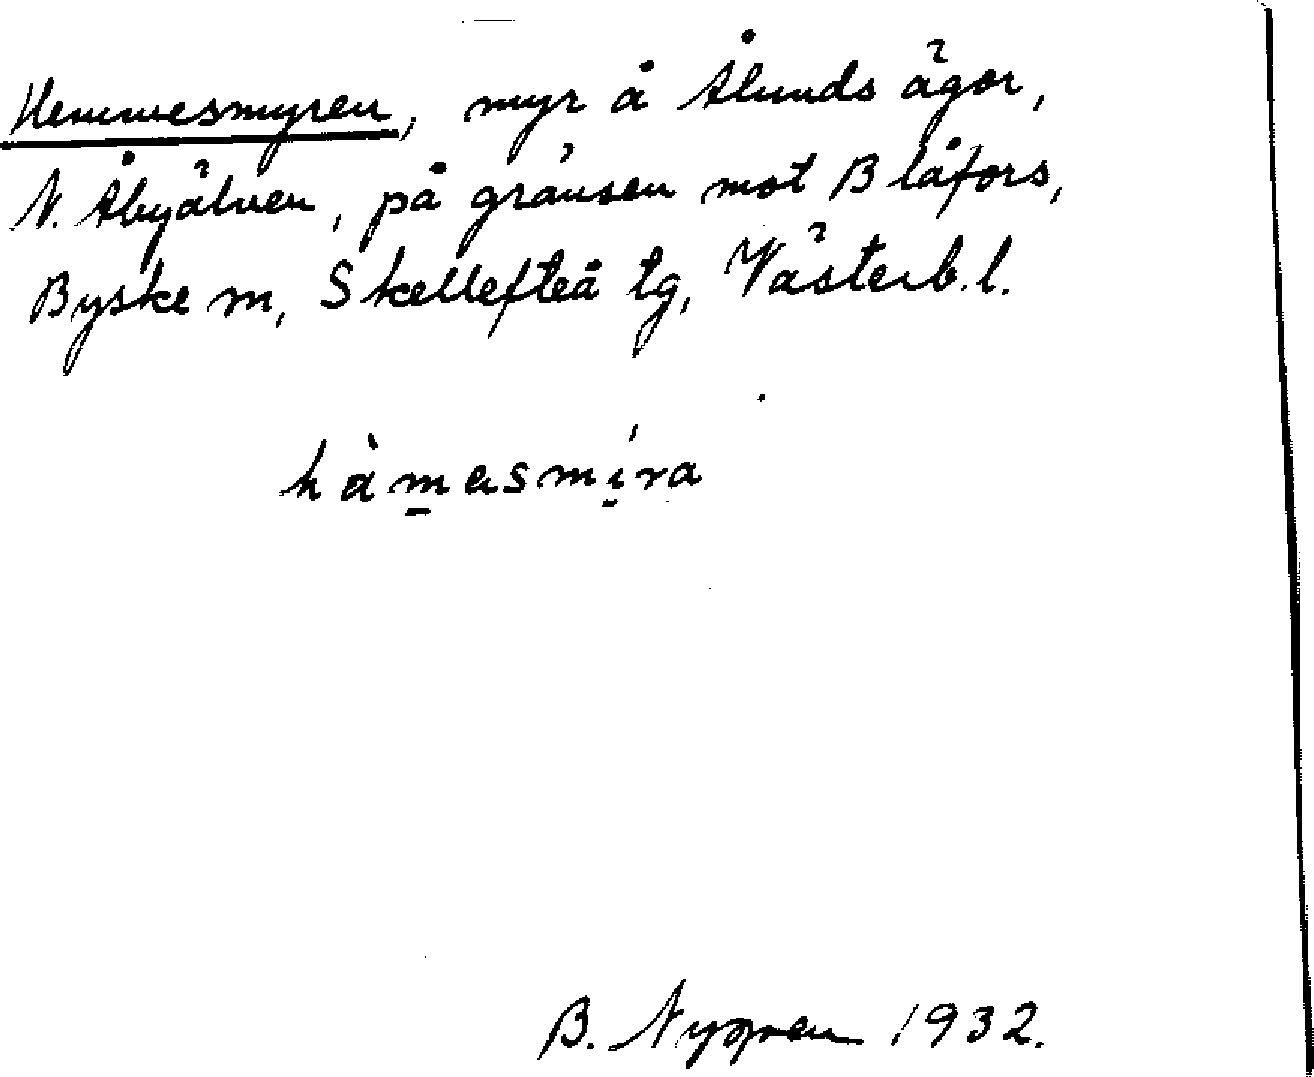 Hemmesmyren, myr å Ålunds ägor,
N. Åbyälven, på gränsen mot Blåfors,
Byske sn, Skellefteå tg, Västerb. l.
hàmasmíra
B. 1932.